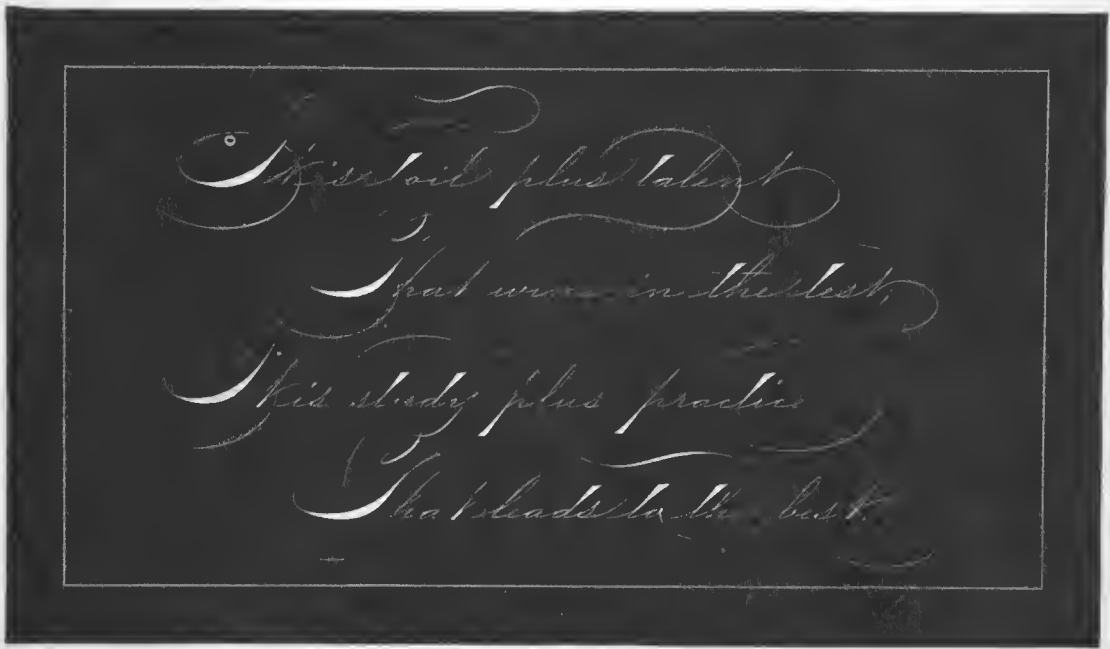 This toil plus talent
That wins in the test;
This study plus practice
That leads to the best.